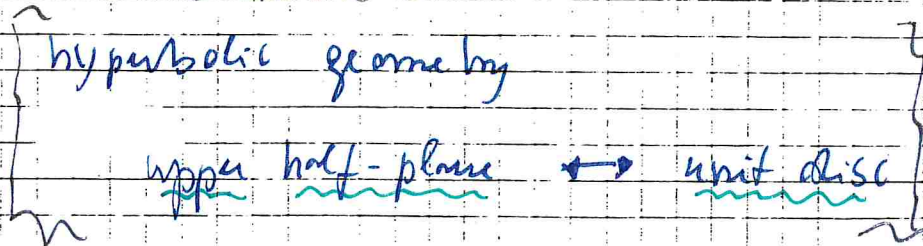 hyperbolic geometry
upper half-plane ↔ unit disc